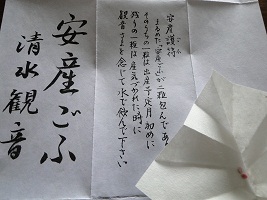 安産護符
まるめた「安産ごふ」が二粒包んである
そのうちの一粒は出産予定月初めに
残りの一粒は産気づかれた時に
観音さまを念じて水で飲んで下さい
安産ごふ
清水観音